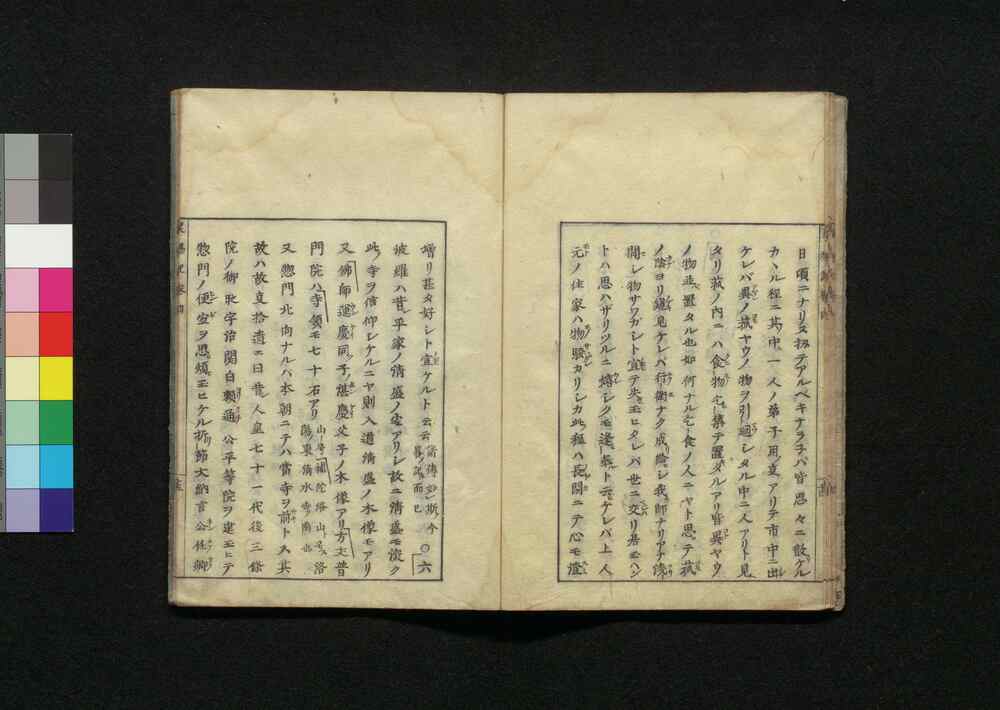 日頃ニナリヌ扨テアルベキナラ子バ皆思々ニ散ケル
カヽル程ニ其中一人ノ弟子用事アリテ市中ニ出
ケレバ異ノ蓑ヤウノ物ヲ引廻シタル中ニ人アリト見
タリ菰ノ内ニハ食物乞集テ置タルアリ皆異ヤウ
ノ物並置タル也如何ナル乞食ノ人ニヤト思テ菰
ノ陰ヨリ見ケレバ行衛ナク成給シ我師ナリアナ
開シ物サワガシト宣テ失玉ヒタレバ世ニ交リ居玉ヘン
トハ思ハザリツルニ嬉シクモ逢奉ト云ケレバ上人
元ノ住家ハ物騒カリシカ此程ハ長閑ニテ心モ澄
増リ甚タ好シト宣ケルト云云 舊傳如斯今畧之而已 ○六
波羅ハ昔平家ノ清盛ノ宅アリシ故ニ清盛モ深ク
此寺ヲ信仰シケルニヤ則入道清盛ノ木像モアリ
又佛師運慶同子湛慶父子ノ木像アリ方丈普
門院ハ寺領モ七十石アリ 山号補陀落山ト号ス洛陽東清水寺南也
又惣門北向ナルハ本朝ニテハ當寺ヲ前トス其
故ハ故事拾遺ニ曰昔人皇七十一代後三條
院ノ御時宇治関白頼通公平等院ヲ建玉ヒテ
惣門ノ便宜ヲ思煩玉ヒケル折節大納言公任卿